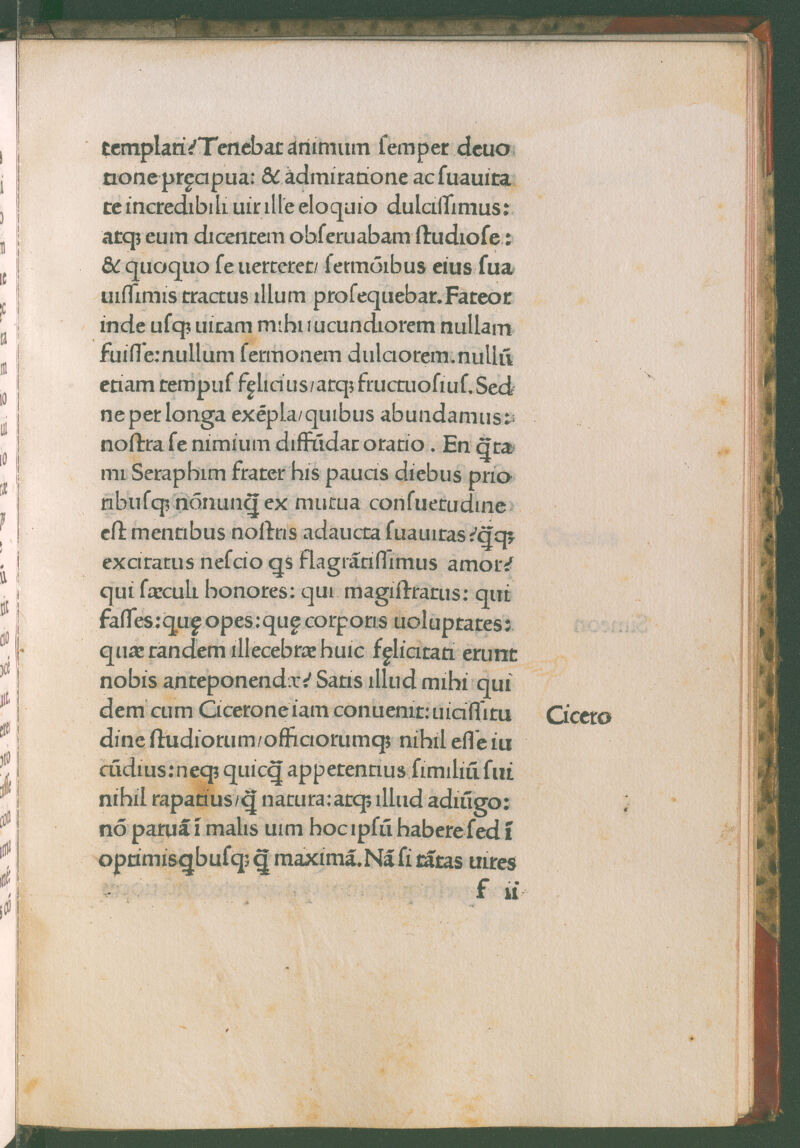 templari?Tenebat animum ſemper deuo
tione pręcipua: & admiratione ac ſuauita
te incredibili uir ille eloquio dulciſſimus:
atq; eum dicentem obſeruabam ſtudioſe :
& quoquo ſe uerteret/ ſermōibus eius ſua
uiſſimis tractus illum proſequebar. Fateor
inde uſq; uitam mihi iucundiorem nullam
fuiſſe: nullum ſermonem dulciorem. nullū
etiam tempuſ fęlicius/atq; fructuoſiuſ. Sed
ne per longa exēpla/quibus abundamus:
noſtra ſe nimium diffūdat oratio . En q̄ta
mi Seraphim frater his paucis diebus prio
ribuſq; nōnunq̄ ex mutua conſuetudine
eſt mentibus noſtris adaucta ſuauitas?q̄q;
excitatus neſcio qs flagrātiſſimus amor?
qui ſæculi honores: qui magiſtratus: qui
faſſes: quę opes: quę corporis uoluptates:
quæ tandem illecebræ huic fęlicitati erunt
nobis anteponendæ? Satis illud mihi qui
dem cum Cicerone iam conuenit: uiciſſitu
dine ſtudiorum/officiorumq; nihil eſſe iu
cūdius: neq; quicq̄ appetentius ſimiliū ſui
nihil rapatius/q̄ natura: atq; illud adiūgo:
nō paruā ī malis uim hoc ipſū habere ſed ī
optimis qbuſq; q̄ maximā. Nā ſi tātas uires
f ii
Cicero